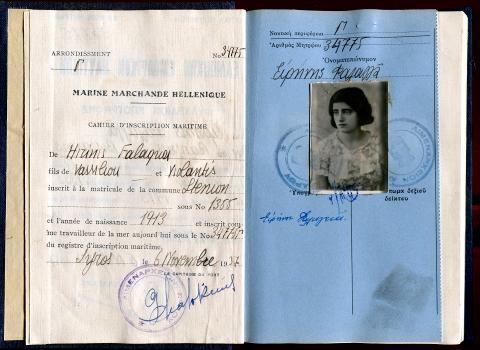 ARRONDISSEMENT No 34775
Γ
MARINE MARCHANDE HELLENIQUE
CAHIER D'INSCRIPTION MARITIME
De Hirinis Falagga
fils de Vassiliou et
inscrit à la matricule de la commune
sous No 1355
et l'année de naissance 1913 et inscrit com-
me travailleur de la mer aujourd hui sous le No 34775
du registre d'inscription maritime.
Syros le 6 Novembre 1937
LE CAPITAINE DU PORT
Ναυτική περιφέρεια Γ
Ἀριθμὸς Μητρῴου 34775
Ὀνοματεπώνυμον
Εἰρήνης Φαλαγγᾶ
δεξιοῦ
δείκτου